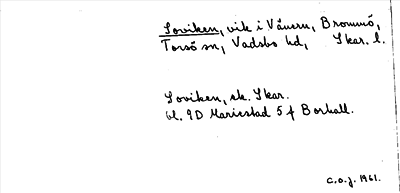 Soviken, vik i Vänern, Brommö,
Torsö sn, Vadsbo hd, Skar. l.
Soviken, ek. Skar.
bl. 9D Mariestad 5 f Borhall.
C.O.J. 1961.